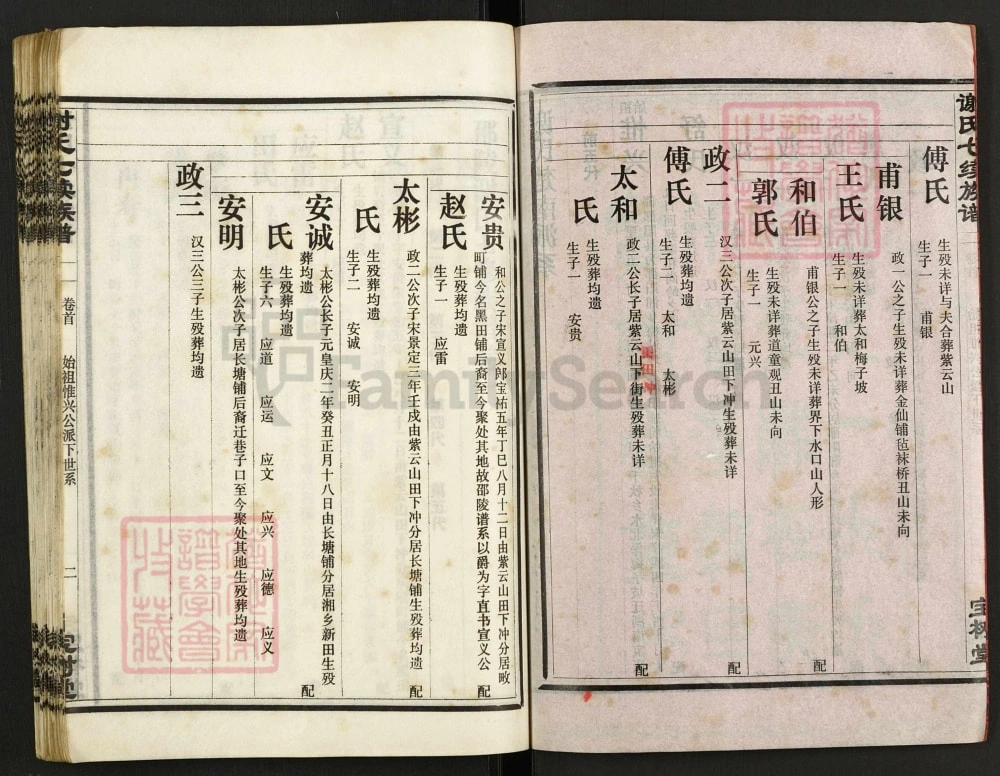 谢氏七续族谱
宝树堂
傅氏
生殁未详与夫合葬紫云山
生子一 甫银
甫银
政一公之子生殁未详葬金仙铺毡袜桥丑山未向
王氏
生殁未详葬太和梅子坡
生子一 和伯
和伯
甫银公之子生殁未详葬界下水口山人形
配
郭氏
生殁未详葬道童观丑山未向
生子一 元兴
政二
汉三公次子居紫云山田下冲生殁葬未详
配
傅氏
生殁葬均遗
生子二 太和 太彬
太和
政二公长子居紫云山下街生殁葬未详
配
氏
生殁葬均遗
生子一 安贵
安贵
和公之子宋宣义郎宝祐五年丁巳八月十二日由紫云山田下冲分居畋
町铺今名黑田铺后裔至今聚处其地故邵陵谱系以爵为字直书宣义公
配
赵氏
生殁葬均遗
生子一 应雷
太彬
政二公次子宋景定三年壬戍由紫云山田下冲分居长塘铺生殁葬均遗
配
氏
生殁葬均遗
生子二 安诚 安明
安诚
太彬公长子元皇庆二年癸丑正月十八日由长塘铺分居湘乡新田生殁
葬均遗
配
氏
生殁葬均遗
生子六 应道 应运 应文 应兴 应德 应义
安明
太彬公次子居长塘铺后裔迁巷子口至今聚处其地生殁葬均遗
政三
汉三公三子生殁葬均遗
卷首 始祖惟兴公派下世系 二
FamilySearch